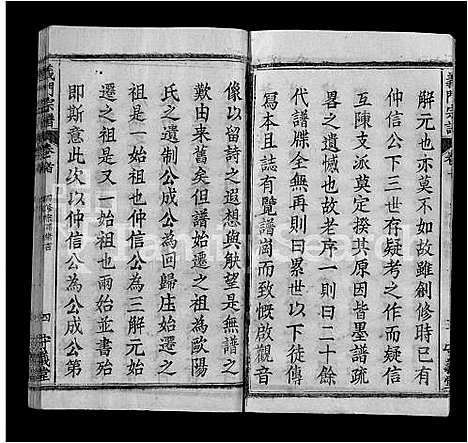 義門宗譜
解元也亦莫不如故雖創修時已有
仲信公下三世存疑考之作而疑信
互陳文派莫定揆其原因皆墨譜疏
畧之遺憾也故老序一則曰二十餘
代譜牒全無再則曰累世以下徒傳
寫本且有覽譜崗而慨然啟觀音
像以留詩之遐想與觖望是無譜之
歎由來舊矣但譜始遷之祖為歐陽
氏之遺制公成公為回歸庄始遷之
祖是一始祖也仲信公為三解元始
遷之祖是又一始祖也兩始並書殆
即斯意此次以仲信公為公成公第
義門宗譜
卷首
四
守義堂